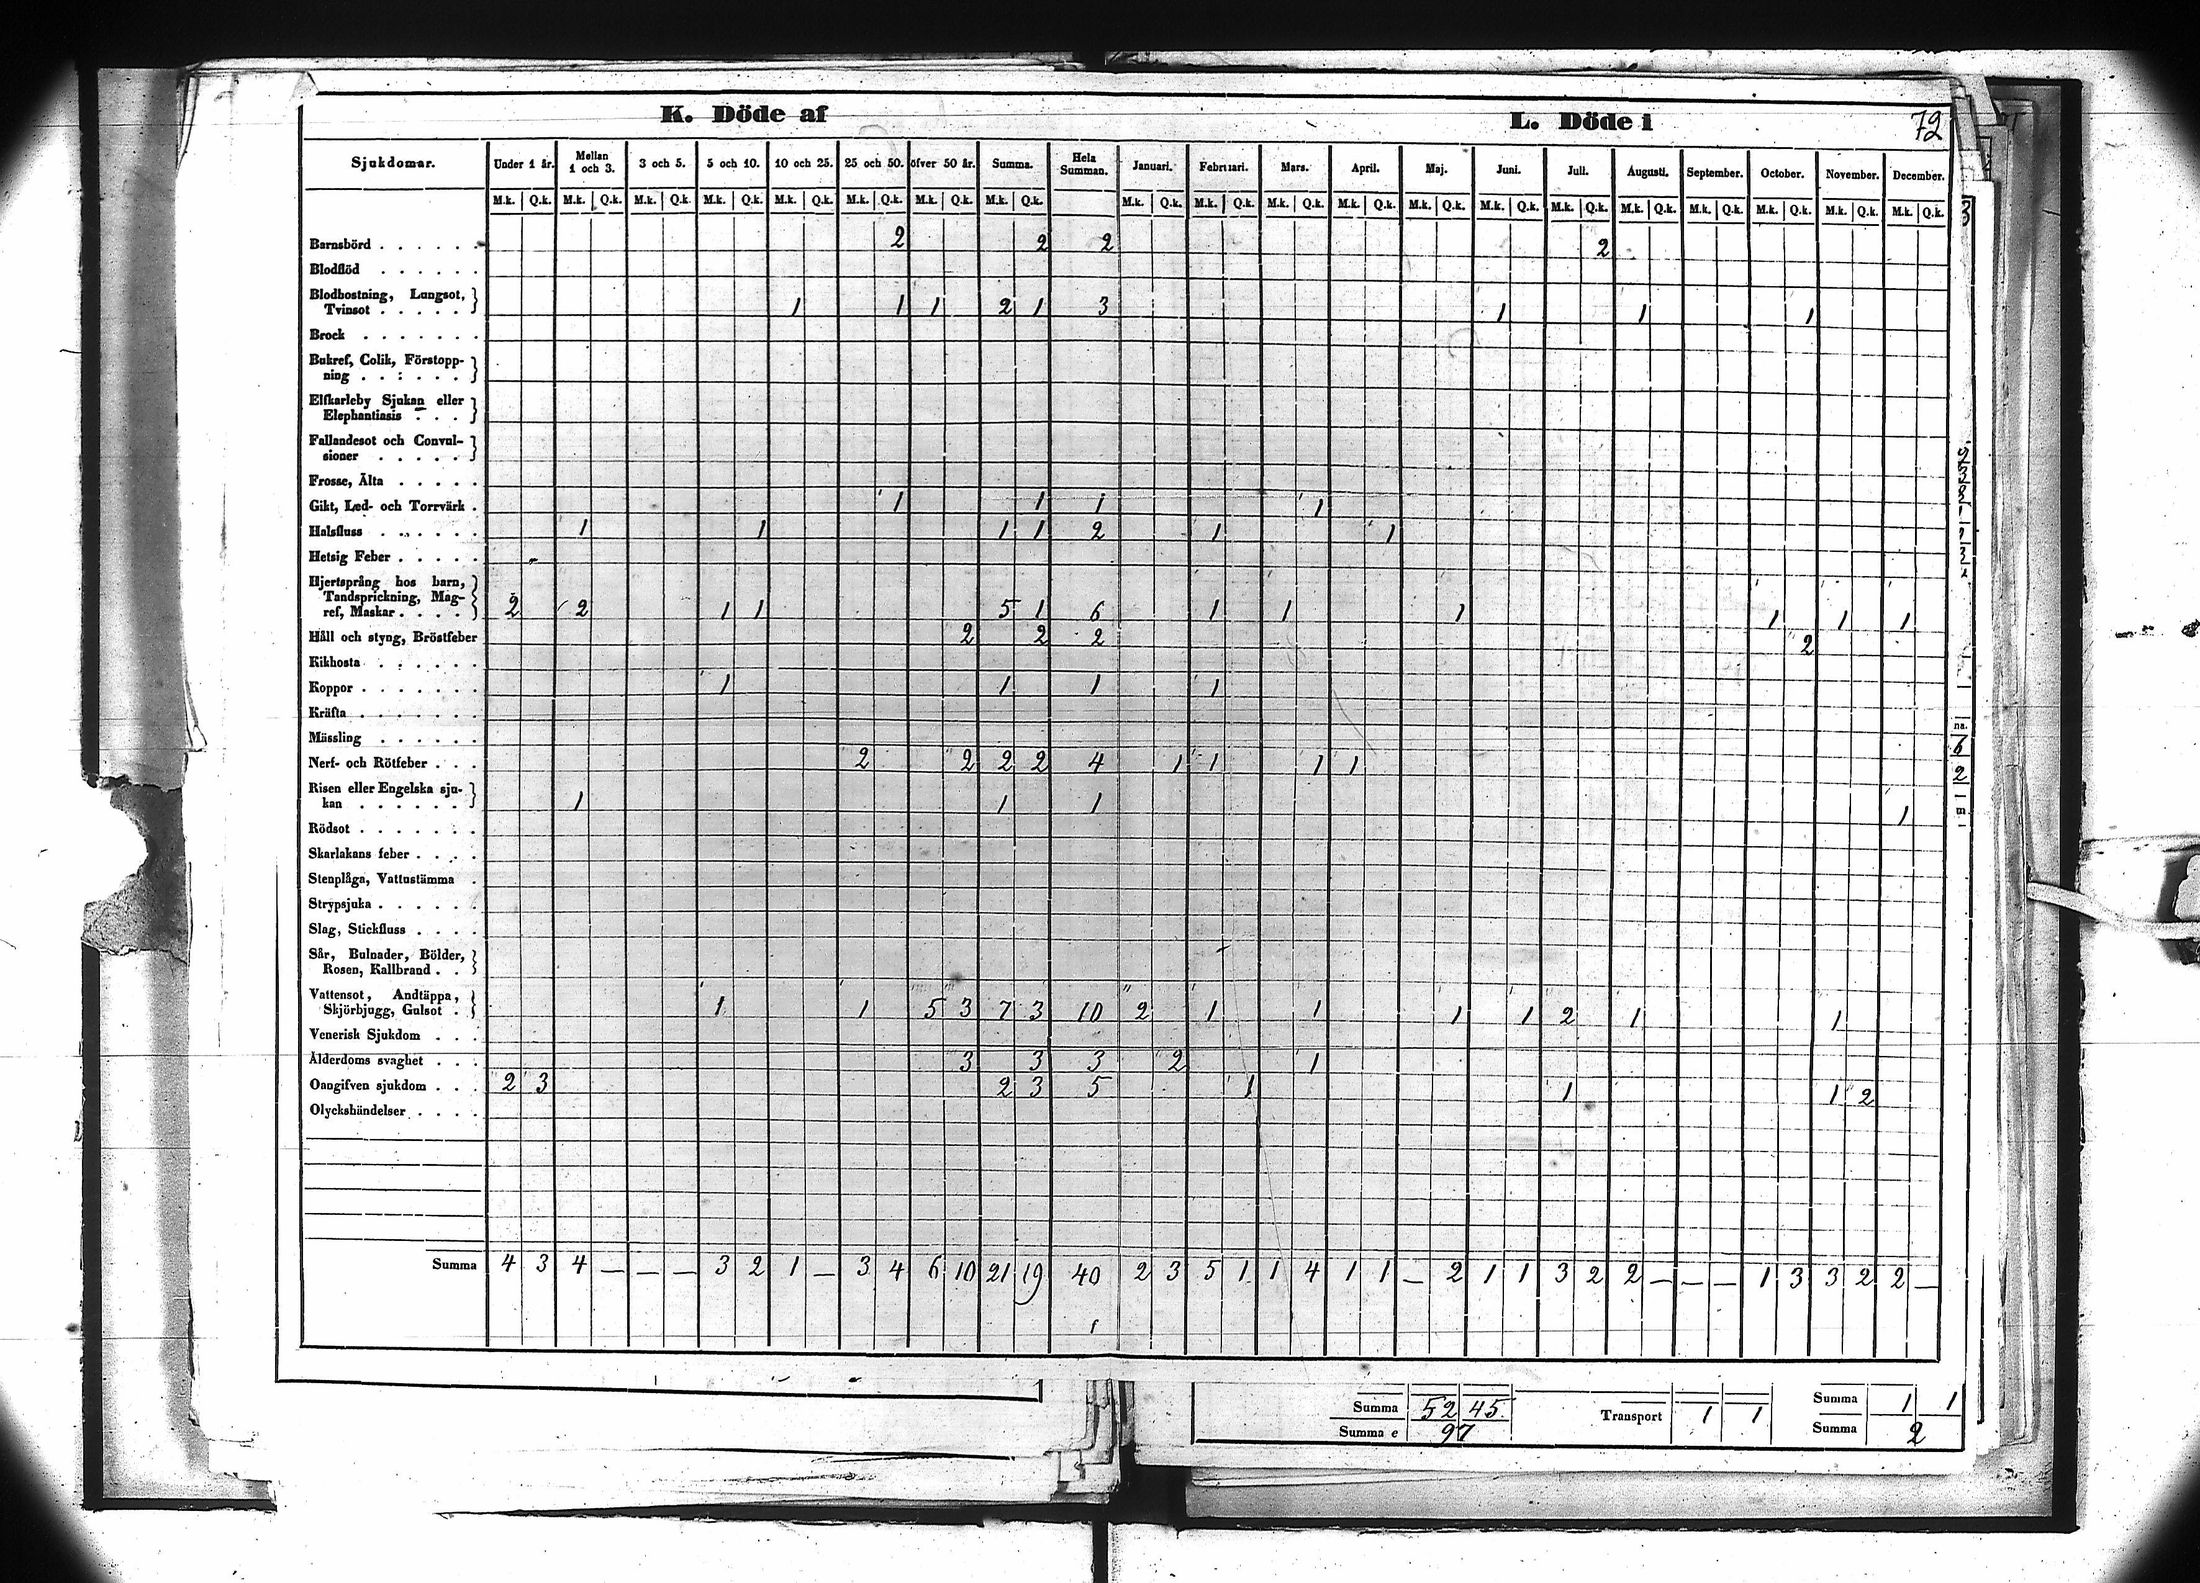 K. Döde af
L. Döde i
72
Sjukdomar. Under 1 år. Mellan 1 och 3. 3 och 5. 5 och 10. 10 och 25. 25 och 50. öfver 50 år. Summa. Hela Summan. Januari. Februari. Mars. April. Maj. Juni. Juli. Augusti. September. October. November. December.
M.k. Q.k. M.k. Q.k. M.k. Q.k. M.k. Q.k. M.k. Q.k. M.k. Q.k. M.k. Q.k. M.k. Q.k. M.k. Q.k. M.k. Q.k. M.k. Q.k. M.k. Q.k. M.k. Q.k. M.k. Q.k. M.k. Q.k. M.k. Q.k. M.k. Q.k. M.k. Q.k. M.k. Q.k. M.k. Q.k.
Barnsbörd . . . . . . 2 2 2 2
Blodflöd . . . . . .
Blodhostning, Lungsot,
Tvinsot . . . . . 1 1 1 2 1 3 1 1 1
Brock . . . . . . .
Bukref, Colik, Förstopp-
ning . . : . . .
Elfkarleby Sjukan eller
Elephantiasis . . .
Fallandesot och Convul-
sioner . . . . .
Frosse, Älta . . . . .
Gikt, Led- och Torrvärk . 1 1 1 1
Halsfluss . . . . . . 1 1 1 1 2 1 1
Hetsig Feber . . . . .
Hjertsprång hos barn,
Tandsprickning, Mag-
ref, Maskar . . . . 2 2 1 1 5 1 6 1 1 1 1 1 1
Håll och styng, Bröstfeber 2 2 2 2
Kikhosta . . . . . .
Koppor . . . . . . . 1 1 1 1
Kräfta . . . . . . .
Mässling . . . . . .
Nerf- och Rötfeber . . . 2 2 2 2 4 1 1 1 1
Risen eller Engelska sju-
kan . . . . . . 1 1 1 1
Rödsot . . . . . . .
Skarlakans feber . . . .
Stenplåga, Vattustämma .
Strypsjuka . . . . . .
Slag, Stickfluss . . . .
Sår, Bulnader, Bölder,
Rosen, Kallbrand . .
Vattensot, Andtäppa,
Skjörbjugg, Gulsot . 1 1 5 3 7 3 10 2 1 1 1 1 2 1 1
Venerisk Sjukdom . . .
Ålderdoms svaghet . . . 3 3 3 2 1
Oangifven sjukdom . . . 2 3 2 3 5 1 1 1 2
Olyckshändelser . . . .
Summa 4 3 4 — — — 3 2 1 — 3 4 6 10 21 19 40 2 3 5 1 1 4 1 1 — 2 1 1 3 2 2 — — — 1 3 3 2 2 —
Summa 52 45. Transport 1 1 Summa 1 1
Summa e 97 Summa 2